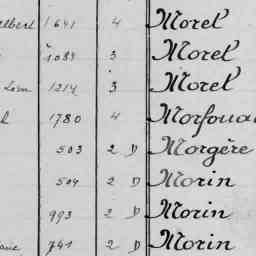 elbert 1641 4 Morel
1084 3 Morel
1214 3 Morel
1780 4 Morfoua
503 2 D Morgère
504 2 D Morin
993 2 D Morin
741 2 D Morin